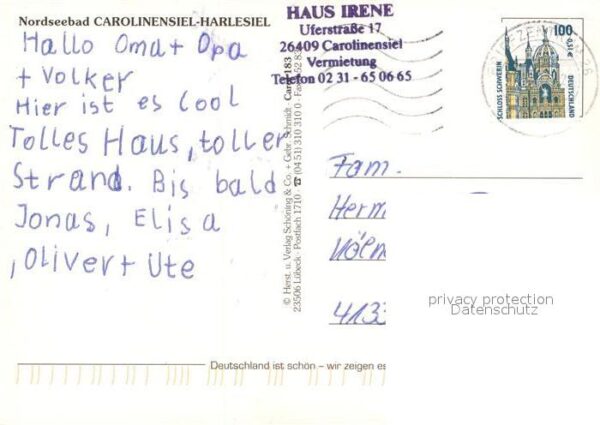 Nordseebad CAROLINENSIEL-HARLESIEL
Hallo Oma + Opa
+ Volker
Hier ist es Cool
Tolles Haus, toller
Strand. Bis bald
Jonas, Elisa
, Oliver + Ute
HAUS IRENE
Uferstraße 17
26409 Carolinensiel
Vermietung
Telefon 02 31 - 65 06 65
© Herst. u. Verlag Schöning & Co. + Gebr. Schmidt
23506 Lübeck · Postfach 1710 · ☎ (04 51) 310 310 0
100
0,51 €
SCHLOSS SCHWERIN
DEUTSCHLAND
Fam.
Herm
Köln
4133
privacy protection
Datenschutz
Deutschland ist schön – wir zeigen es